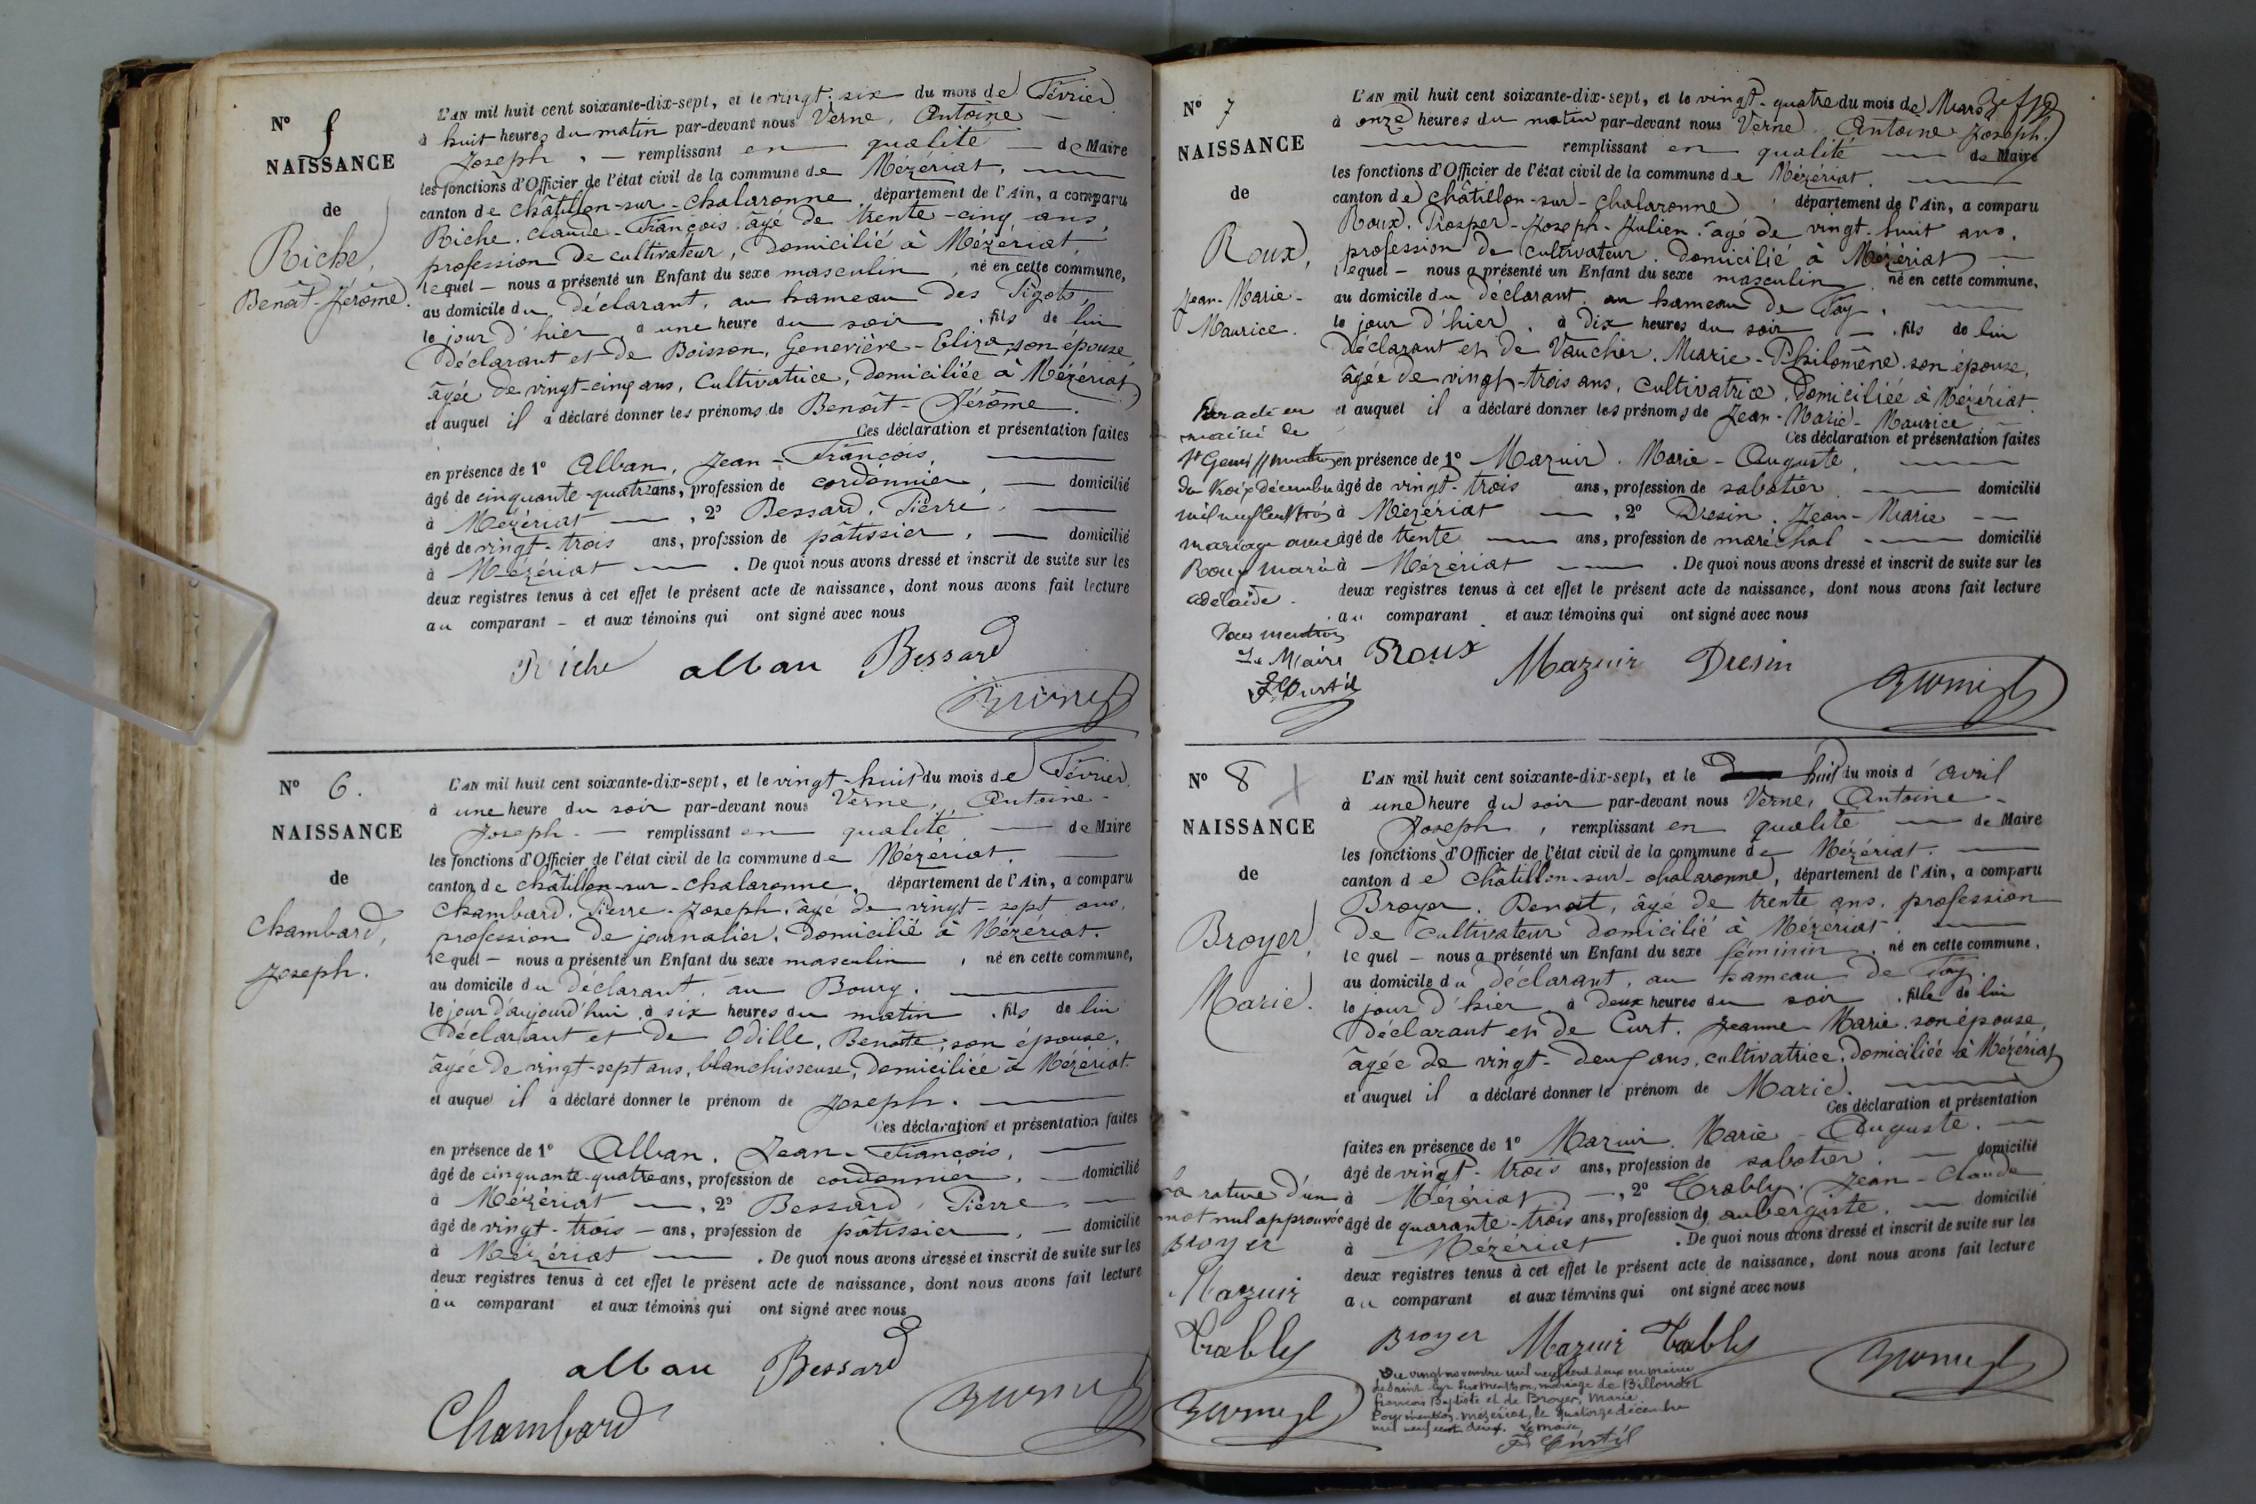 N° 5
NAISSANCE
de
Riche,
Benoît-Jérôme.
L'AN mil huit cent soixante-dix-sept, et le vingt-six du mois de Février
à huit heures du matin par-devant nous Verne, Antoine
Joseph, remplissant en qualité de Maire
les fonctions d'Officier de l'état civil de la commune de Mézériat,
canton de Châtillon-sur-Chalaronne, département de l'Ain, a comparu
Riche, Claude-François, âgé de trente-cinq ans,
profession de cultivateur, domicilié à Mézériat
lequel nous a présenté un Enfant du sexe masculin, né en cette commune,
au domicile du déclarant, au hameau des
le jour d'hier à une heure du soir, fils de lui
déclarant et de Boisson, Geneviève-Eliza, son épouse,
âgée de vingt-cinq ans, cultivatrice, domiciliée à Mézériat
et auquel il a déclaré donner les prénoms de Benoît-Jérôme.
Ces déclaration et présentation faites
en présence de 1° Alban, Jean-François,
âgé de cinquante-quatre ans, profession de cordonnier, domicilié
à Mézériat, 2° Bessard, Pierre,
âgé de vingt-trois ans, profession de pâtissier, domicilié
à Mézériat. De quoi nous avons dressé et inscrit de suite sur les
deux registres tenus à cet effet le présent acte de naissance, dont nous avons fait lecture
au comparant et aux témoins qui ont signé avec nous
Riche alban Bessard
N° 6.
NAISSANCE
de
Chambard,
Joseph.
L'AN mil huit cent soixante-dix-sept, et le vingt-huit du mois de Février
à une heure du soir par-devant nous Verne, Antoine-
Joseph remplissant en qualité de Maire
les fonctions d'Officier de l'état civil de la commune de Mézériat.
canton de Châtillon-sur-Chalaronne, département de l'Ain, a comparu
Chambard, Pierre-Joseph, âgé de vingt-sept ans,
profession de journalier, domicilié à Mézériat.
lequel nous a présenté un Enfant du sexe masculin, né en cette commune,
au domicile du déclarant, au Bourg.
le jour d'aujourd'hui à six heures du matin, fils de lui
déclarant et de Odille, Benoîte, son épouse,
âgée de vingt-sept ans, blanchisseuse, domiciliée à Mézériat.
et auquel il a déclaré donner le prénom de Joseph.
Ces déclaration et présentation faites
en présence de 1° Alban, Jean-François,
âgé de cinquante-quatre ans, profession de cordonnier, domicilié
à Mézériat, 2° Bessard, Pierre
âgé de vingt-trois ans, profession de pâtissier, domicilié
à Mézériat. De quoi nous avons dressé et inscrit de suite sur les
deux registres tenus à cet effet le présent acte de naissance, dont nous avons fait lecture
au comparant et aux témoins qui ont signé avec nous
alban Bessard
Chambard
N° 7
NAISSANCE
de
Roux,
Jean-Marie-
Maurice.
L'AN mil huit cent soixante-dix-sept, et le vingt-quatre du mois de Mars
à onze heures du matin par-devant nous Verne, Antoine Joseph.
remplissant en qualité de Maire
les fonctions d'Officier de l'état civil de la commune de Mézériat.
canton de Châtillon-sur-Chalaronne, département de l'Ain, a comparu
Roux, Prosper-Joseph-Julien, âgé de vingt-huit ans,
profession de cultivateur, domicilié à Mézériat
lequel nous a présenté un Enfant du sexe masculin, né en cette commune,
au domicile du déclarant, au hameau de Foy,
le jour d'hier, à dix heures du soir, fils de lui
déclarant et de Vaucher, Marie-Philomène, son épouse,
âgée de vingt-trois ans, cultivatrice, domiciliée à Mézériat.
et auquel il a déclaré donner les prénoms de Jean-Marie-Maurice
Ces déclaration et présentation faites
en présence de 1° Mazuir, Marie-Auguste,
âgé de vingt-trois ans, profession de sabotier, domicilié
à Mézériat, 2° Dresin, Jean-Marie
âgé de trente ans, profession de maréchal domicilié
à Mézériat. De quoi nous avons dressé et inscrit de suite sur les
deux registres tenus à cet effet le présent acte de naissance, dont nous avons fait lecture
au comparant et aux témoins qui ont signé avec nous
Par acte en
mairie de
St Genis
du trois décembre
mil neuf cent trois
mariage avec
Roux Marie
adélaïde.
Pour mention
Le Maire
Roux Mazuir Dresin
N° 8
NAISSANCE
de
Broyer,
Marie.
L'AN mil huit cent soixante-dix-sept, et le huit du mois d'avril
à une heure du soir par-devant nous Verne, Antoine-
Joseph, remplissant en qualité de Maire
les fonctions d'Officier de l'état civil de la commune de Mézériat.
canton de Châtillon-sur-Chalaronne, département de l'Ain, a comparu
Broyer, Benoit, âgé de trente ans, profession
de cultivateur domicilié à Mézériat.
lequel nous a présenté un Enfant du sexe féminin, né en cette commune,
au domicile du déclarant, au hameau de Foy.
le jour d'hier à deux heures du soir, fille de lui
déclarant et de Curt, Jeanne-Marie, son épouse,
âgée de vingt-deux ans, cultivatrice, domiciliée à Mézériat
et auquel il a déclaré donner le prénom de Marie.
Ces déclaration et présentation
faites en présence de 1° Mazuir, Marie-Auguste.
âgé de vingt-trois ans, profession de sabotier, domicilié
à Mézériat, 2° Trably, Jean-Claude
âgé de quarante-trois ans, profession de aubergiste, domicilié
à Mézériat. De quoi nous avons dressé et inscrit de suite sur les
deux registres tenus à cet effet le présent acte de naissance, dont nous avons fait lecture
au comparant et aux témoins qui ont signé avec nous
La rature d'un
mot nul approuvée
Broyer
Mazuir
Trably
Broyer Mazuir Trably
Du vingt novembre mil neuf cent deux en mairie
de Saint Cyr sur Menthon, mariage de Billoudet
François Baptiste et de Broyer, Marie
Pour mention. Mézériat, le quatorze décembre
mil neuf cent deux. Le maire,